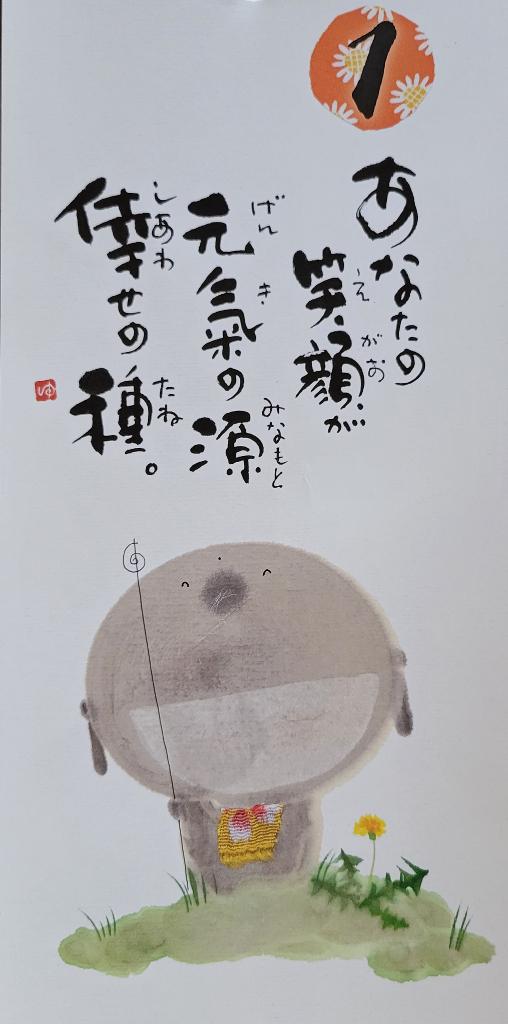 1
あなたの
笑顔が
えがお
元氣の源
げんき みなもと
倖せの種。
しあわ たね
ゆ